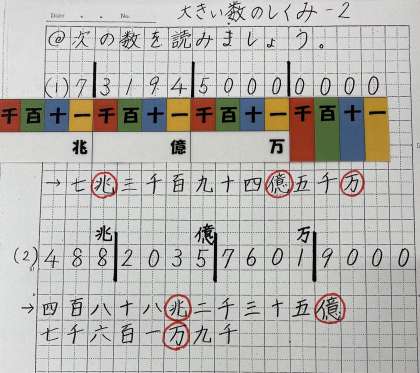 Date . . No.
大きい数のしくみ-2
@次の数を読みましょう。
(1) 7 3 1 9 4 5 0 0 0 0 0 0 0
千百十一千百十一千百十一千百十一
兆 億 万
→七兆三千百九十四億五千万
兆 億 万
(2) 4 8 8 2 0 3 5 7 6 0 1 9 0 0 0
→四百八十八兆二千三十五億
七千六百一万九千